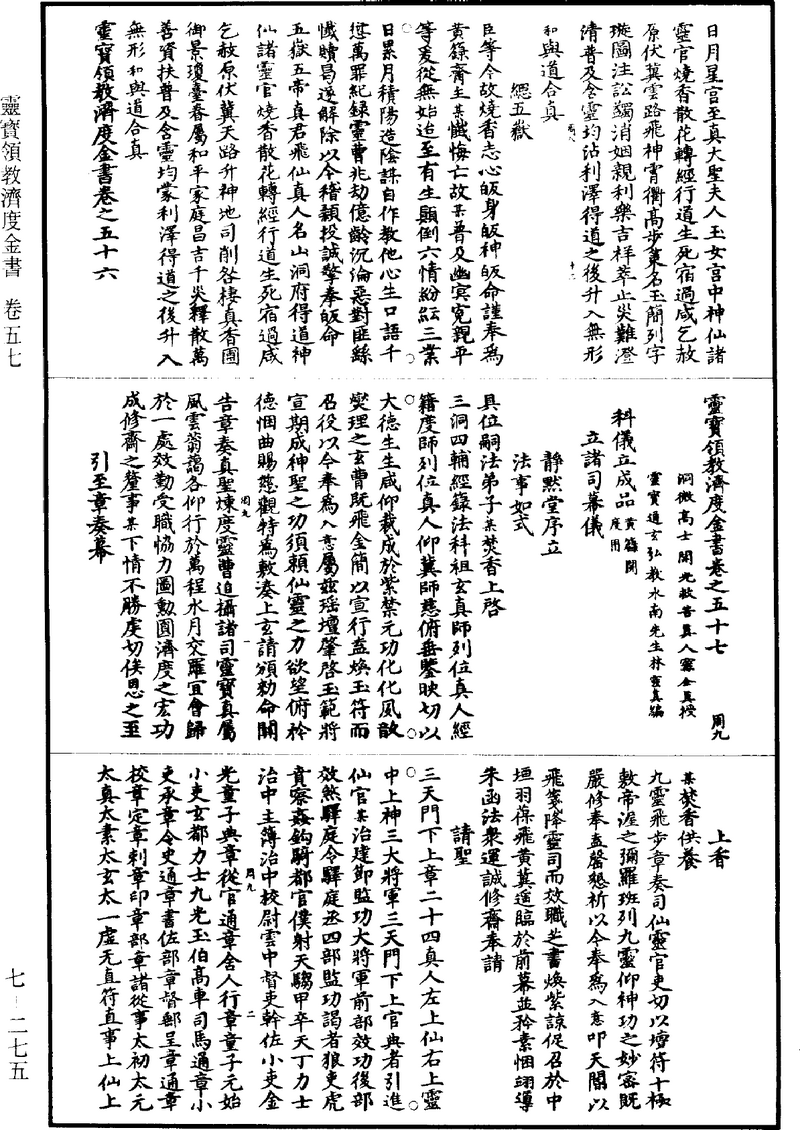 靈寶領教濟度金書　卷五七
七－二七五
日月星宮至真大聖夫人玉女宮中神仙諸
靈官燒香散花轉經行道生死宿過咸乞赦
原伏冀雲路飛神霄衢高步策名玉簡列字
璇圖注訟蠲消姻親利樂吉祥萃止災難澄
清普及含靈均沾利澤得道之後升入無形
和與道合真
禮五嶽
臣等今故燒香志心皈身皈神皈命謹奉為
黃籙齋主某懺悔亡故某普及幽冥寃親平
等爰從無始迨至有生顛倒六情紛紜三業
日累月積陽造陰謀自作教他心生口語千
愆萬罪紀録靈曹兆劫億齡沉淪惡對匪繇
懺贖曷遂解除以今稽顙投誠擎拳皈命
五嶽五帝真君飛仙真人名山洞府得道神
仙諸靈官燒香散花轉經行道生死宿過咸
乞赦原伏冀天路升神地司削咎棲真香圃
御景瓊臺眷屬和平家庭昌吉千災釋散萬
善資扶普及含靈均蒙利澤得道之後升入
無形和與道合真
靈寶領教濟度金書卷之五十六
靈寶領教濟度金書卷之五十七　周九
洞微高士開光救苦真人甯全真授
靈寶通玄弘教水南先生林靈真編
科儀立成品 黃籙開度用
立諸司幕儀
靜默堂序立
法事如式
具位嗣法弟子某焚香上啓
三洞四輔經籙法科祖玄真師列位真人經
籍度師列位真人仰冀師慈俯垂鑒映切以
大德生生咸仰載成於紫禁元功化化夙欽
燮理之玄曹既飛金簡以宣行盍煥玉符而
召役以今奉為入意屬兹瑶壇肇啓玉範將
宣期成神聖之功須賴仙靈之力欲望俯矜
德悃曲賜慈觀特為敷奏上玄請頒勑命關
告章奏真聖煉度靈曹追攝諸司靈寶真屬
風雲蓊藹各仰行於萬程水月交羅宜會歸
於一處效勤受職恊力圖勳圓濟度之宏功
成修齋之釐事某下情不勝虔切俟恩之至
引至章奏幕
上香
某焚香供養
九靈飛步章奏司仙靈官吏切以濟符十極
敷帝渥之彌羅班列九靈仰神功之妙密既
嚴修奉盍罄懇祈以今奉為入意叩天閽以
飛箋降靈司而效職芝書煥紫諒促召於中
垣羽葆飛黃冀遥臨於前幕並矜素悃翊導
朱函法衆運誠修齋奉請
請聖
三天門下上章二十四真人左上仙右上靈
中上神三大將軍三天門下上官典者引進
仙官某治建節監功大將軍前部效功後部
效煞驛庭令驛庭丞四部監功謁者狼吏虎
賁察姦鈎騎都官僕射天騶甲卒天丁力士
治中主簿治中校尉雲中督吏幹佐小吏金
光童子典章從官通章舍人行章童子元始
小吏玄都力士九光玉伯高車司馬通章小
吏承章令史通章書佐部章督郵呈章通章
校章定章刺章印章部章諸從事太初太元
太真太素太玄太一虛无直符直事上仙上